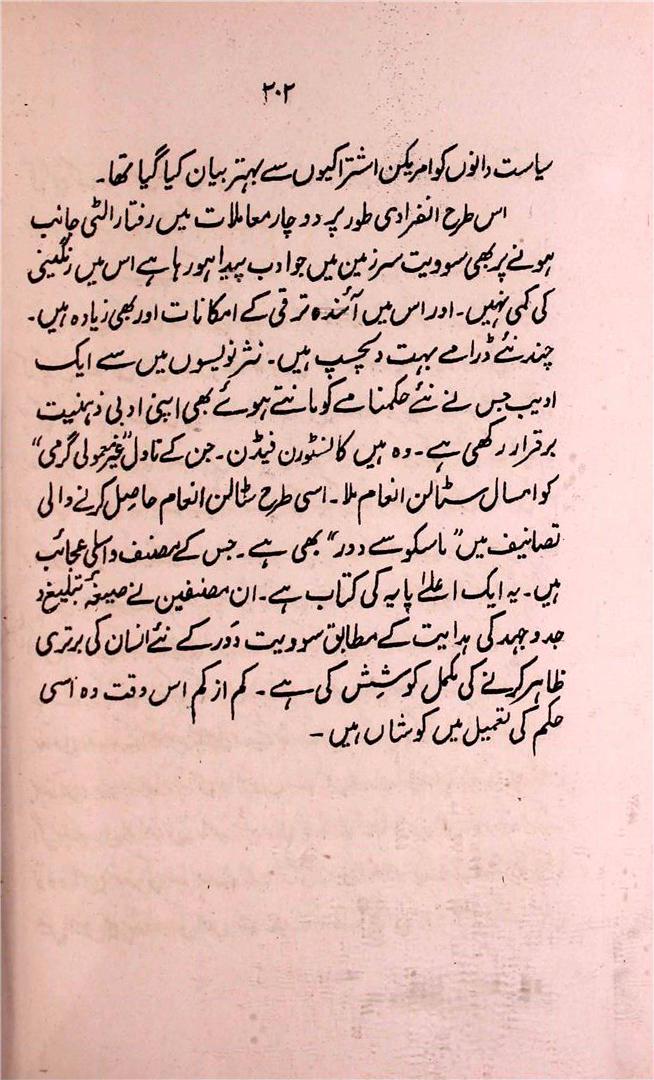 ۲۰۲
سیاست دانوں کو امریکن اشتراکیوں سے بہتر بیان کیا گیا تھا۔
اس طرح انفرادی طور پر دو چار معاملات میں رفتار الٹی جانب
ہونے پر بھی سوویت سرزمین میں جو ادب پیدا ہو رہا ہے اس میں رنگینی
کی کمی نہیں۔ اور اس میں آئندہ ترقی کے امکانات اور بھی زیادہ ہیں۔
چند نئے ڈرامے بہت دلچسپ ہیں۔ نثر نویسوں میں سے ایک
ادیب جس نے نئے حکمنامے کو مانتے ہوئے بھی اپنی ادبی ذہنیت
برقرار رکھی ہے۔ وہ ہیں کانسٹورن فیڈن۔ جن کے ناول "غیر معمولی گرمی"
کو امسال سٹالن انعام ملا۔ اسی طرح سٹالن انعام حاصل کرنے والی
تصانیف میں "ماسکو سے دور" بھی ہے۔ جس کے مصنف واسلی عجائب
ہیں۔ یہ ایک اعلےٰ پایہ کی کتاب ہے۔ ان مصنفین نے صیغۂ تبلیغ و
جدوجہد کی ہدایت کے مطابق سوویت دَور کے نئے انسان کی برتری
ظاہر کرنے کی مکمل کوشِش کی ہے۔ کم از کم اس وقت وہ اسی
حکم کی تعمیل میں کوشاں ہیں۔